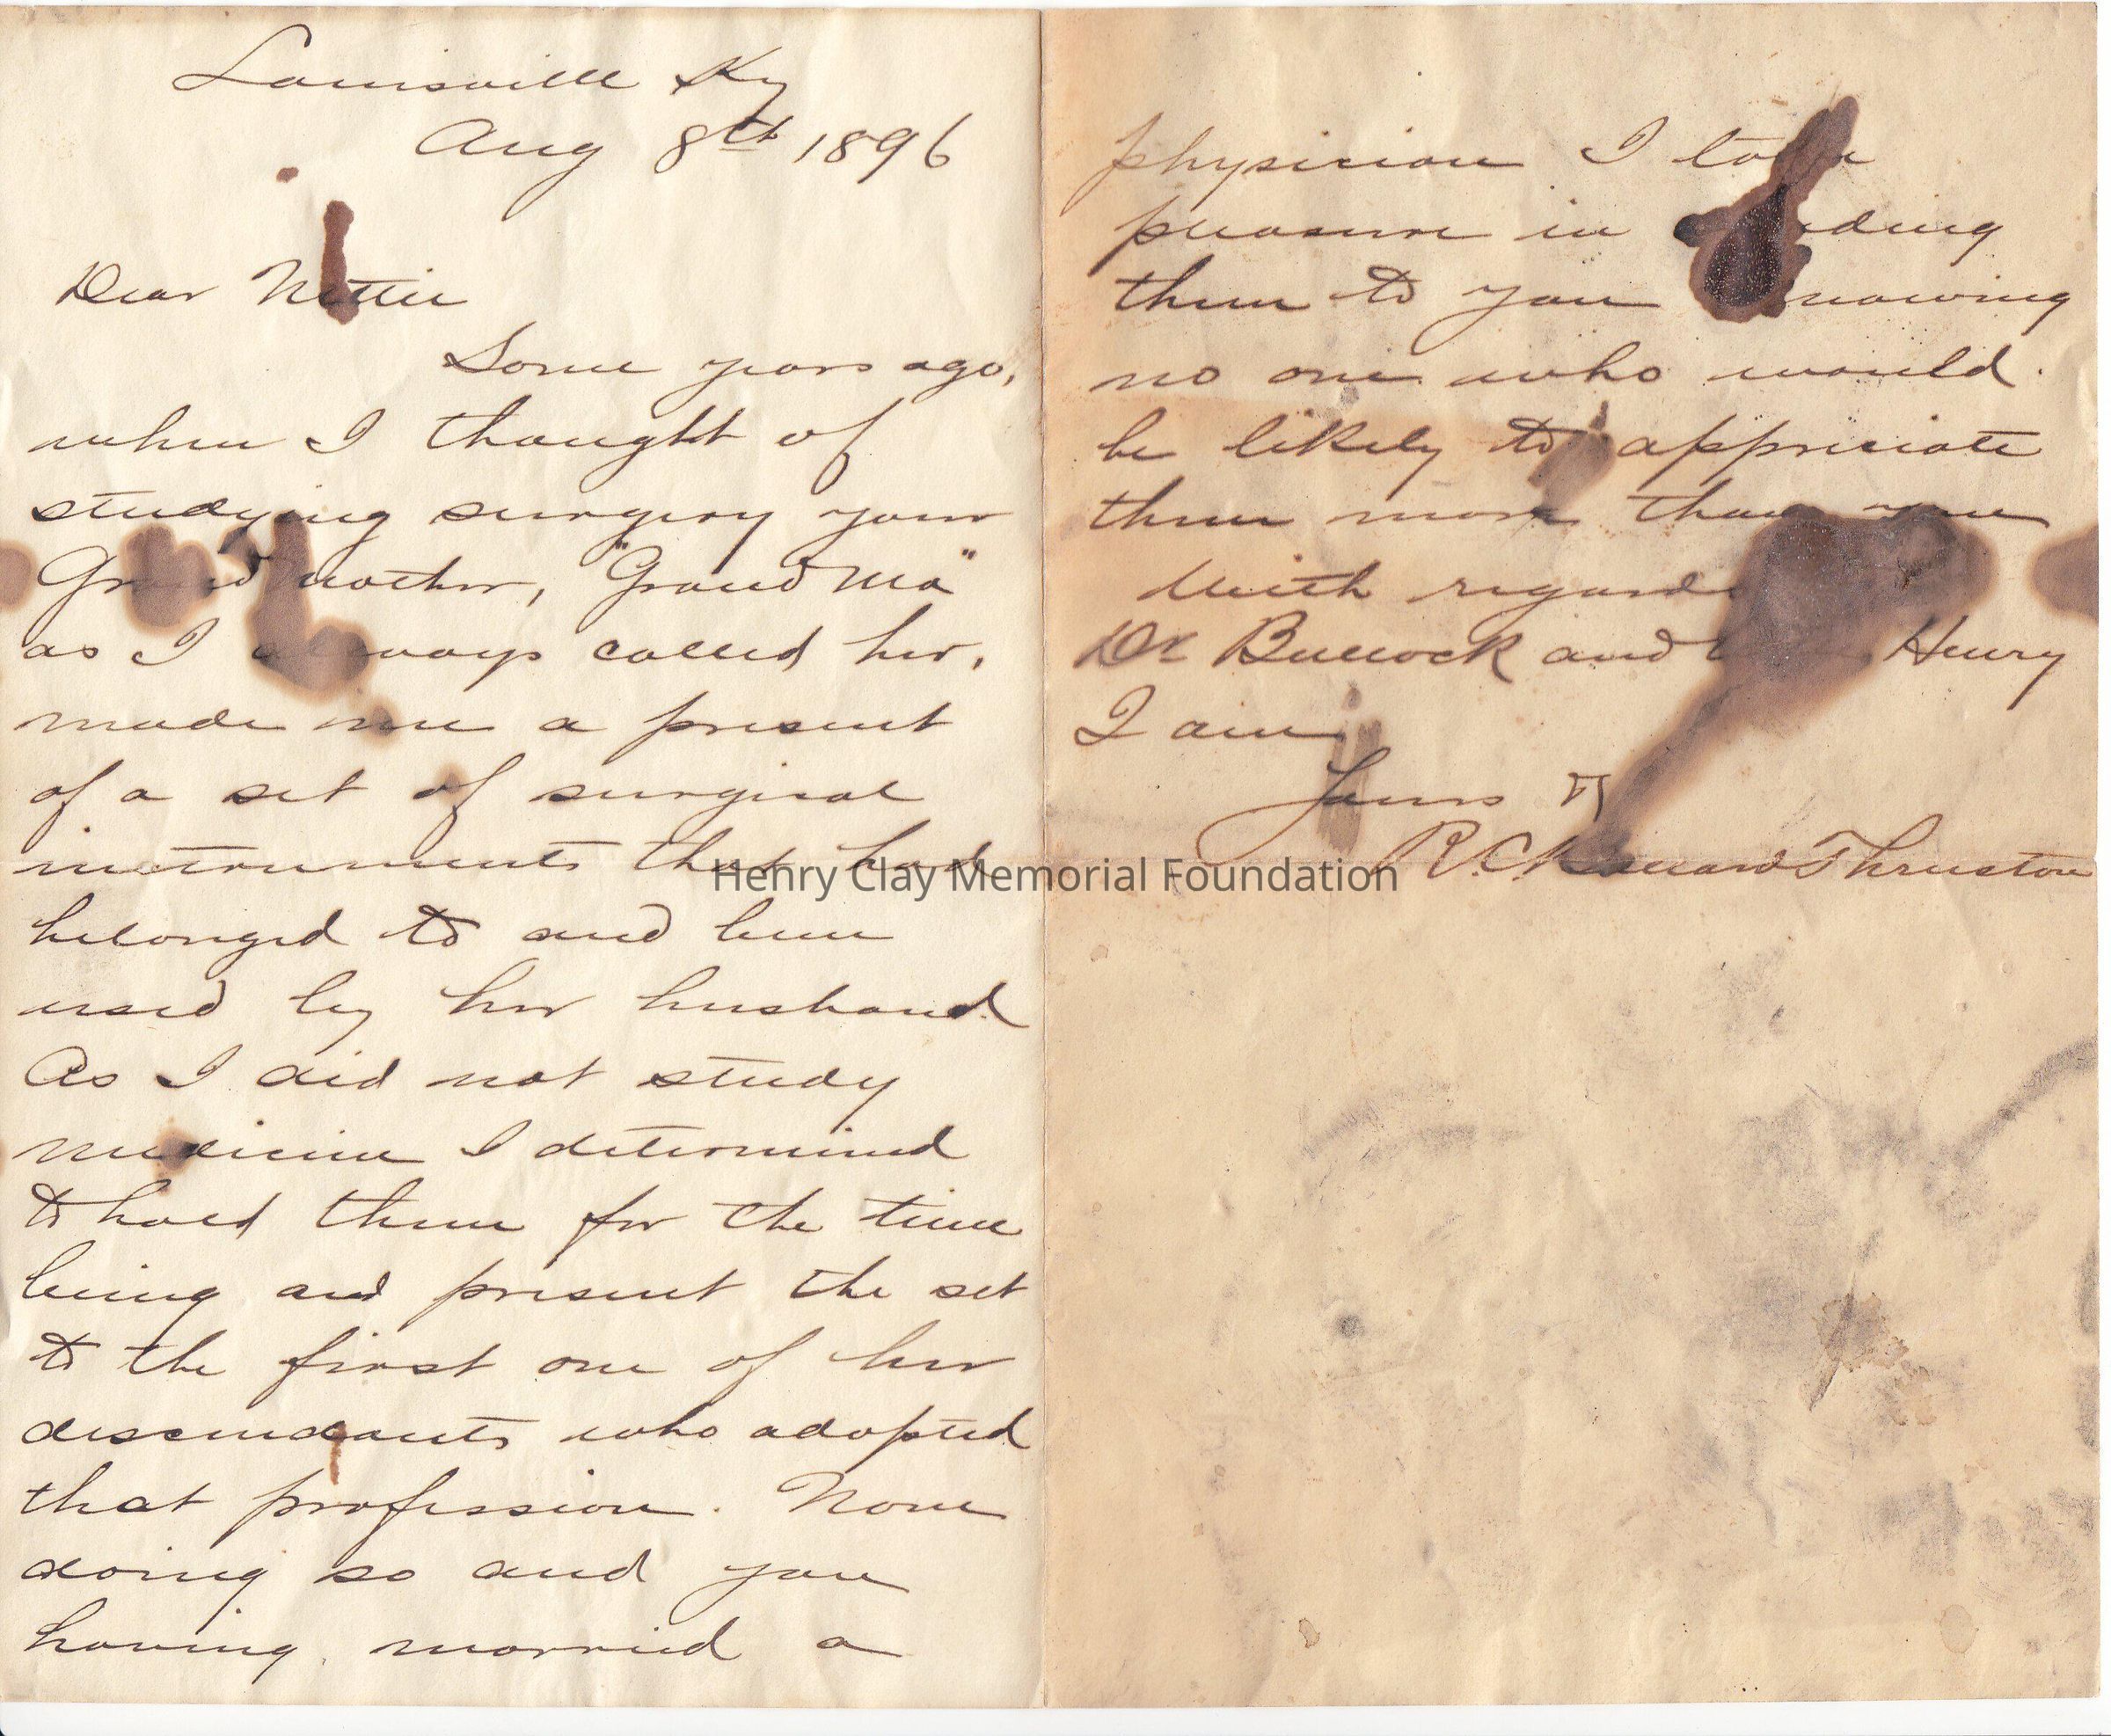 Louisville Ky
Aug 8th 1896
Dear Nettie
Some years ago,
when I thought of
studying surgery your
Grandmother, "Grand Ma"
as I always called her,
made me a present
of a set of surgical
instruments that had
belonged to and been
used by her husband.
As I did not study
medicine I determined
to hold them for the time
being and present the set
to the first one of her
descendants who adopted
that profession. None
doing so and you
having married a
physician I take
pleasure in sending
them to you knowing
no one who would
be likely to appreciate
them more than you
With regards
Dr Bullock and Henry
I am
Yours
R. C. Ballard Thruston
Henry Clay Memorial Foundation